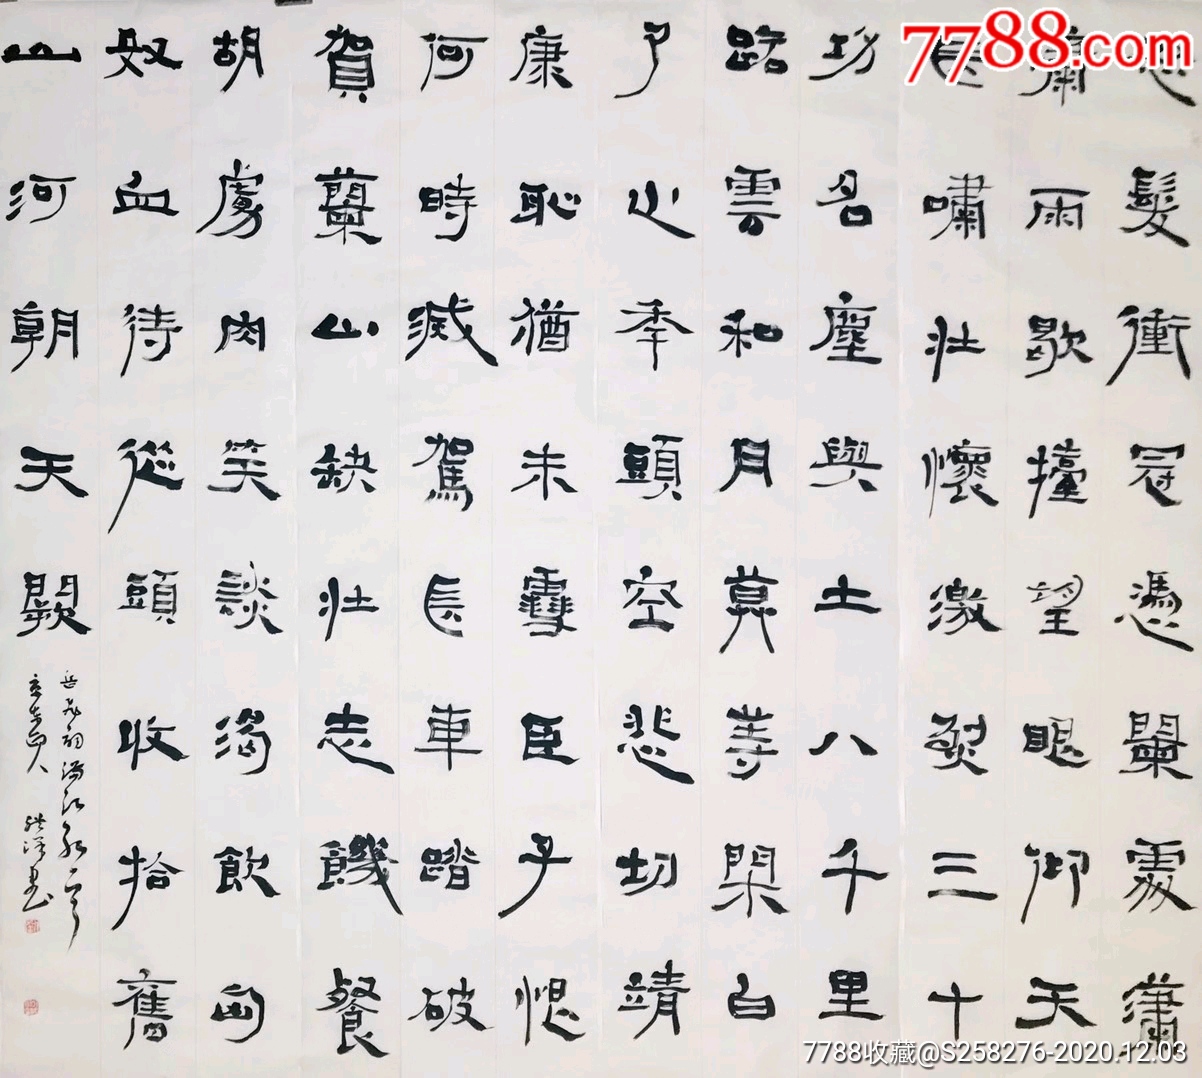 怒髮衝冠憑闌處瀟
瀟雨歇擡望眼仰天
長嘯壯懷激烈三十
功名塵與土八千里
路雲和月莫等閑白
了少年頭空悲切靖
康恥猶未雪臣子恨
何時滅駕長車踏破
賀蘭山缺壯志饑餐
胡虜肉笑談渴飲匈
奴血待從頭收拾舊
山河朝天闕
岳飛詞滿江紅一首
山人
书
7788.com
7788收藏@S258276-2020.12.03